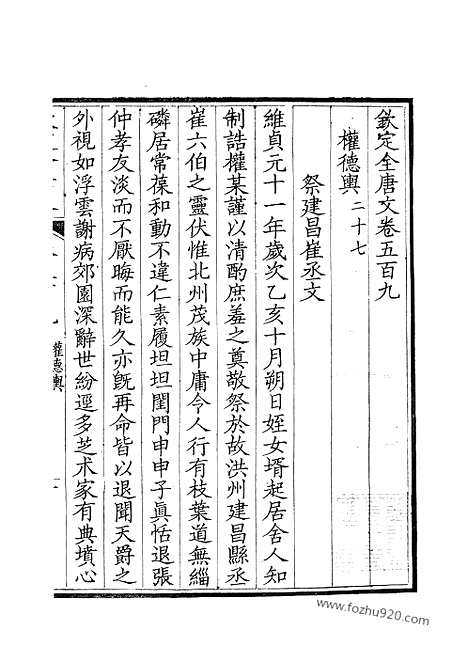 欽定全唐文卷五百九
權德輿二十七
祭建昌崔丞文
維貞元十一年歲次乙亥十月朔日姪女壻起居舍人知
制誥權某謹以清酌庶羞之奠敬祭於故洪州建昌縣丞
崔六伯之靈伏惟北州茂族中庸令人行有枝葉道無緇
磷居常葆和動不違仁素履坦坦閨門申申子眞恬退張
仲孝友淡而不厭晦而能久亦旣再命皆以退聞天爵之
外視如浮雲謝病郊園深辭世紛逕多芝术家有典墳心
權德輿
www.fozhu920.com